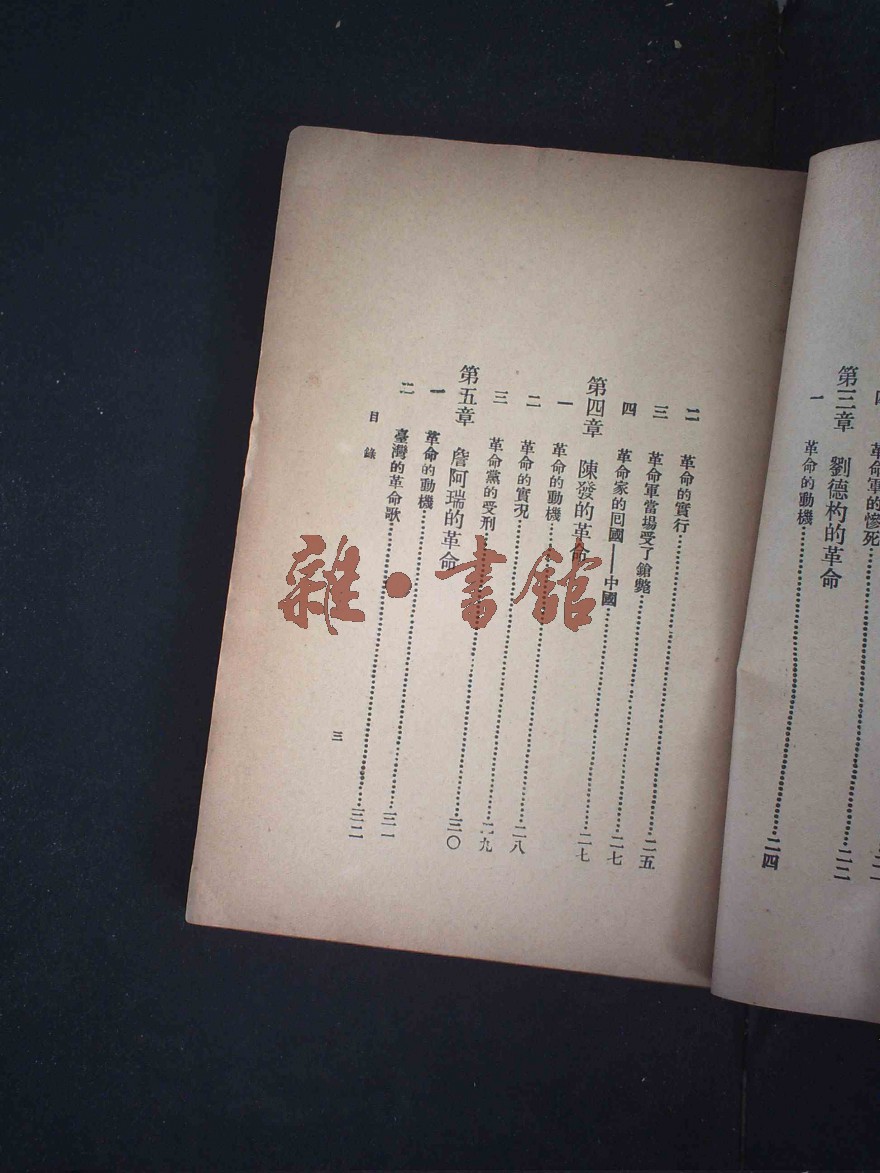 革命軍的慘死……二二
第三章 劉德杓的革命
一 革命的動機……二四
二 革命的實行……二五
三 革命軍當場受了鎗斃……二七
四 革命家的囘國——中國……二七
第四章 陳發的革命
一 革命的動機……二八
二 革命的實況……二九
三 革命黨的受刑……三〇
第五章 詹阿瑞的革命
一 革命的動機……三一
二 臺灣的革命歌……三二
目錄
三
雜·書館